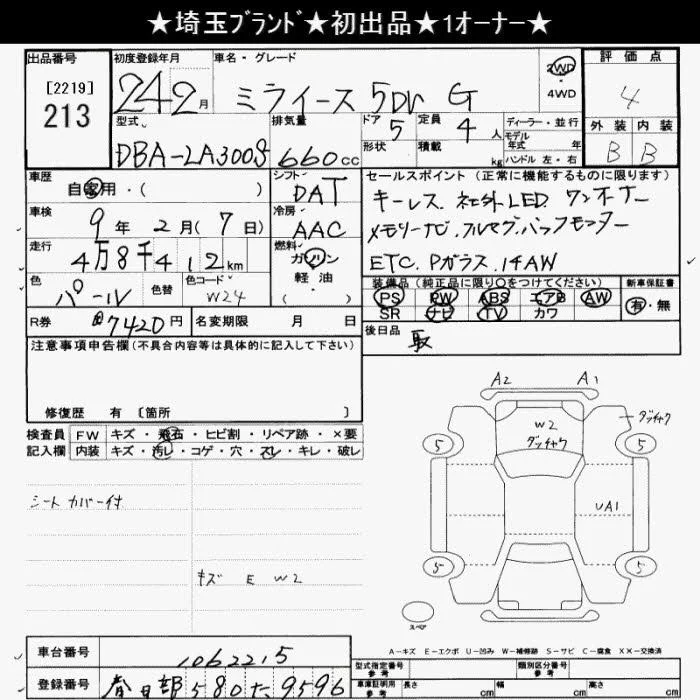 ★埼玉ﾌﾞﾗﾝﾄﾞ★初出品★1オーナー★
出品番号 初度登録年月 車名・グレード 評価点
[2219]
213
24 2月 ミライース 5DR G 2WD・4WD 4
型式 排気量 ドア 定員 ディーラー・並行 外装 内装
DBA-LA300S 660cc 5 4人 モデル年式 年 B B
形状 積載 kg ハンドル 左・右
車歴 自家用・( ) シフト DAT セールスポイント(正常に機能するものに限ります)
車検 9年 2月(7日) 冷房 AAC キーレス.社外LED ワンオーナー
メモリーナビ.フルセグ.バックモニター
走行 4万8千412km 燃料 ガソリン・軽油・( ) ETC.Pガラス.14AW
色 パール 色替 色コード W24 装備品(純正品に限り○をつけてください) 新車保証書
PS PW ABS エアB AW 有・無
SR ナビ TV カワ
R券 7420円 名変期限 月 日 後日品 取
注意事項申告欄(不具合内容等は具体的に記入して下さい)
修復歴 有 〔箇所 〕
検査員記入欄 FW キズ・飛石・ヒビ割・リペア跡・×要
内装 キズ・汚レ・コゲ・穴・スレ・キレ・破レ
シートカバー付
キズ E W2
A2 A1
W2
ダッチャク
ダッチャク
5 5
UA1
5 5
スペア
A-キズ E-エクボ U-凹み W-補修跡 S-サビ C-腐食 XX-交換済
車台番号 1062215 型式指定番号 参考 類別区分番号 参考
登録番号 春日部580た9596 車庫証明用 参考 長さ cm 幅 cm 高さ cm